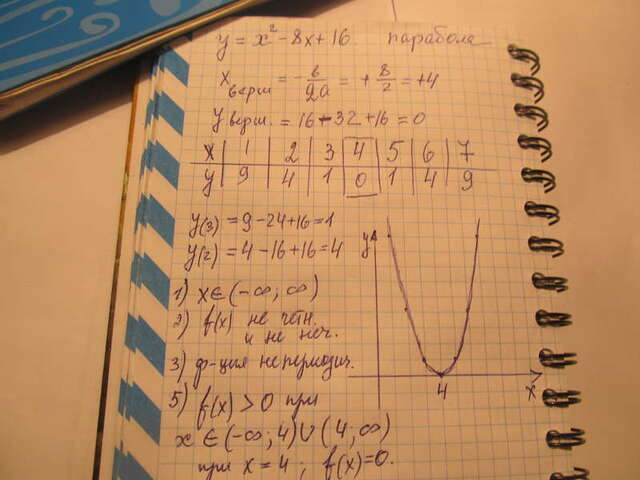 y = x² - 8x + 16 парабола
x верш = - в/2a = + 8/2 = +4
y верш. = 16 - 32 + 16 = 0
x | 1 | 2 | 3 | 4 | 5 | 6 | 7
y | 9 | 4 | 1 | 0 | 1 | 4 | 9
y(3) = 9 - 24 + 16 = 1
y(2) = 4 - 16 + 16 = 4
y
4
x
1) x ∈ (-∞; ∞)
2) f(x) не четн.
и не неч.
3) ф-ция непериодич.
5) f(x) > 0 при
x ∈ (-∞; 4) ∪ (4; ∞)
при x = 4; f(x) = 0.